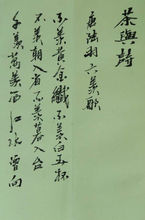 茶與詩
唐陸羽六羨歌
不羨黃金不羨白玉杯
不羨朝入省不羨暮入台
千羨萬羨西江水曾向